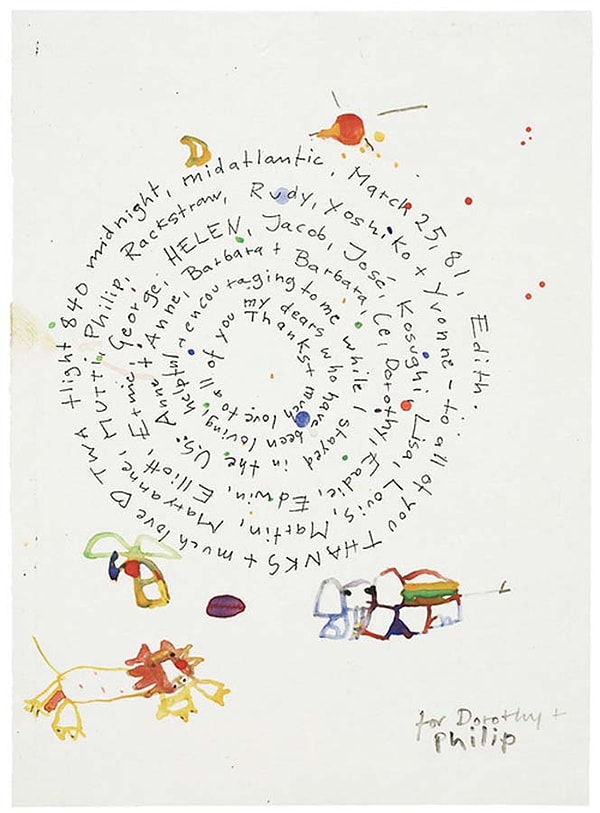 Thanks + much love to all of you my dears who have been loving, helpful + encouraging to me while I stayed in the U.S. Anne + Anne, Barbara + Barbara, Ce, Dorothy, Eadie, Edwin, Elliott, Ernie, George, HELEN, Jacob, José, Kosughi, Lisa, Louis, Martin, Maryanne, MUTTI, Philip, Rackstraw, Rudy, Yoshiko + Yvonne - to all of you THANKS + much love D TWA flight 840 midnight, midatlantic, March 25, 81, Edith.
for Dorothy +
Philip